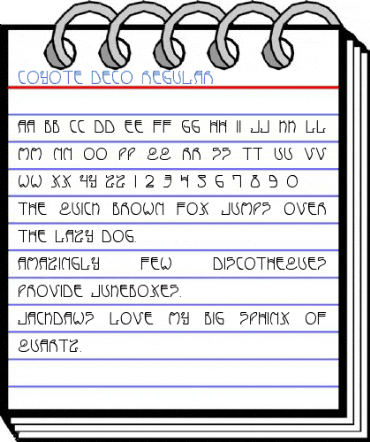 COYOTE DECO REGULAR
AA BB CC DD EE FF GG HH II JJ KK LL
MM NN OO PP QQ RR SS TT UU VV
WW XX YY ZZ 1 2 3 4 5 6 7 8 9 0
THE QUICK BROWN FOX JUMPS OVER
THE LAZY DOG.
AMAZINGLY FEW DISCOTHEQUES
PROVIDE JUKEBOXES.
JACKDAWS LOVE MY BIG SPHINX OF
QUARTZ.